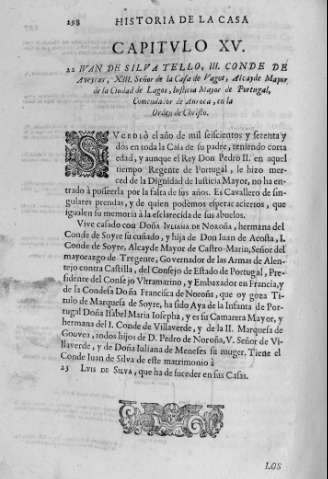 258 HISTORIA DE LA CASA
CAPITVLO XV.
22 IVAN DE SILVA TELLO, III. CONDE DE
Aveyras, XIII. Señor de la Casa de Vagos, Alcayde Mayor
de la Ciudad de Lagos, Iusticia Mayor de Portugal,
Comendador de Aurora, en la
Orden de Christo.
SVCEDIÒ el año de mil seiscientos y setenta y
dos en toda la Casa de su padre, teniendo corta
edad, y aunque el Rey Don Pedro II. en aquel
tiempo Regente de Portugal, le hizo mer-
ced de la Dignidad de Iusticia Mayor, no ha en-
trado à posseerla por la falta de los años. Es Cavallero de sin-
gulares prendas, y de quien podemos esperar aciertos, que
igualen su memoria à la esclarecida de sus abuelos.
Vive casado con DOÑA IVLIANA DE NOROÑA, hermana del
Conde de Soyre su casado, y hija de Don Iuan de Acosta, I.
Conde de Soyre, Alcayde Mayor de Castro-Marin, Señor del
mayorazgo de Tregente, Governador de las Armas de Alen-
tejo contra Castilla, del Consejo de Estado de Portugal, Pre-
sidente del Consejo Vltramarino, y Embaxador en Francia, y
de la Condesa Doña Francisca de Noroña, que oy goza Ti-
tulo de Marquesa de Soyre, ha sido Aya de la Infanta de Por-
tugal Doña Isabel Maria Iosepha, y es su Camarera Mayor, y
hermana del I. Conde de Villaverde, y de la II. Marquesa de
Gouvea, todos hijos de D. Pedro de Noroña, V. Señor de Vi-
llaverde, y de Doña Iuliana de Meneses su muger. Tiene el
Conde Iuan de Silva de este matrimonio à
23 LVIS DE SILVA, que ha de suceder en sus Casas.
LOS